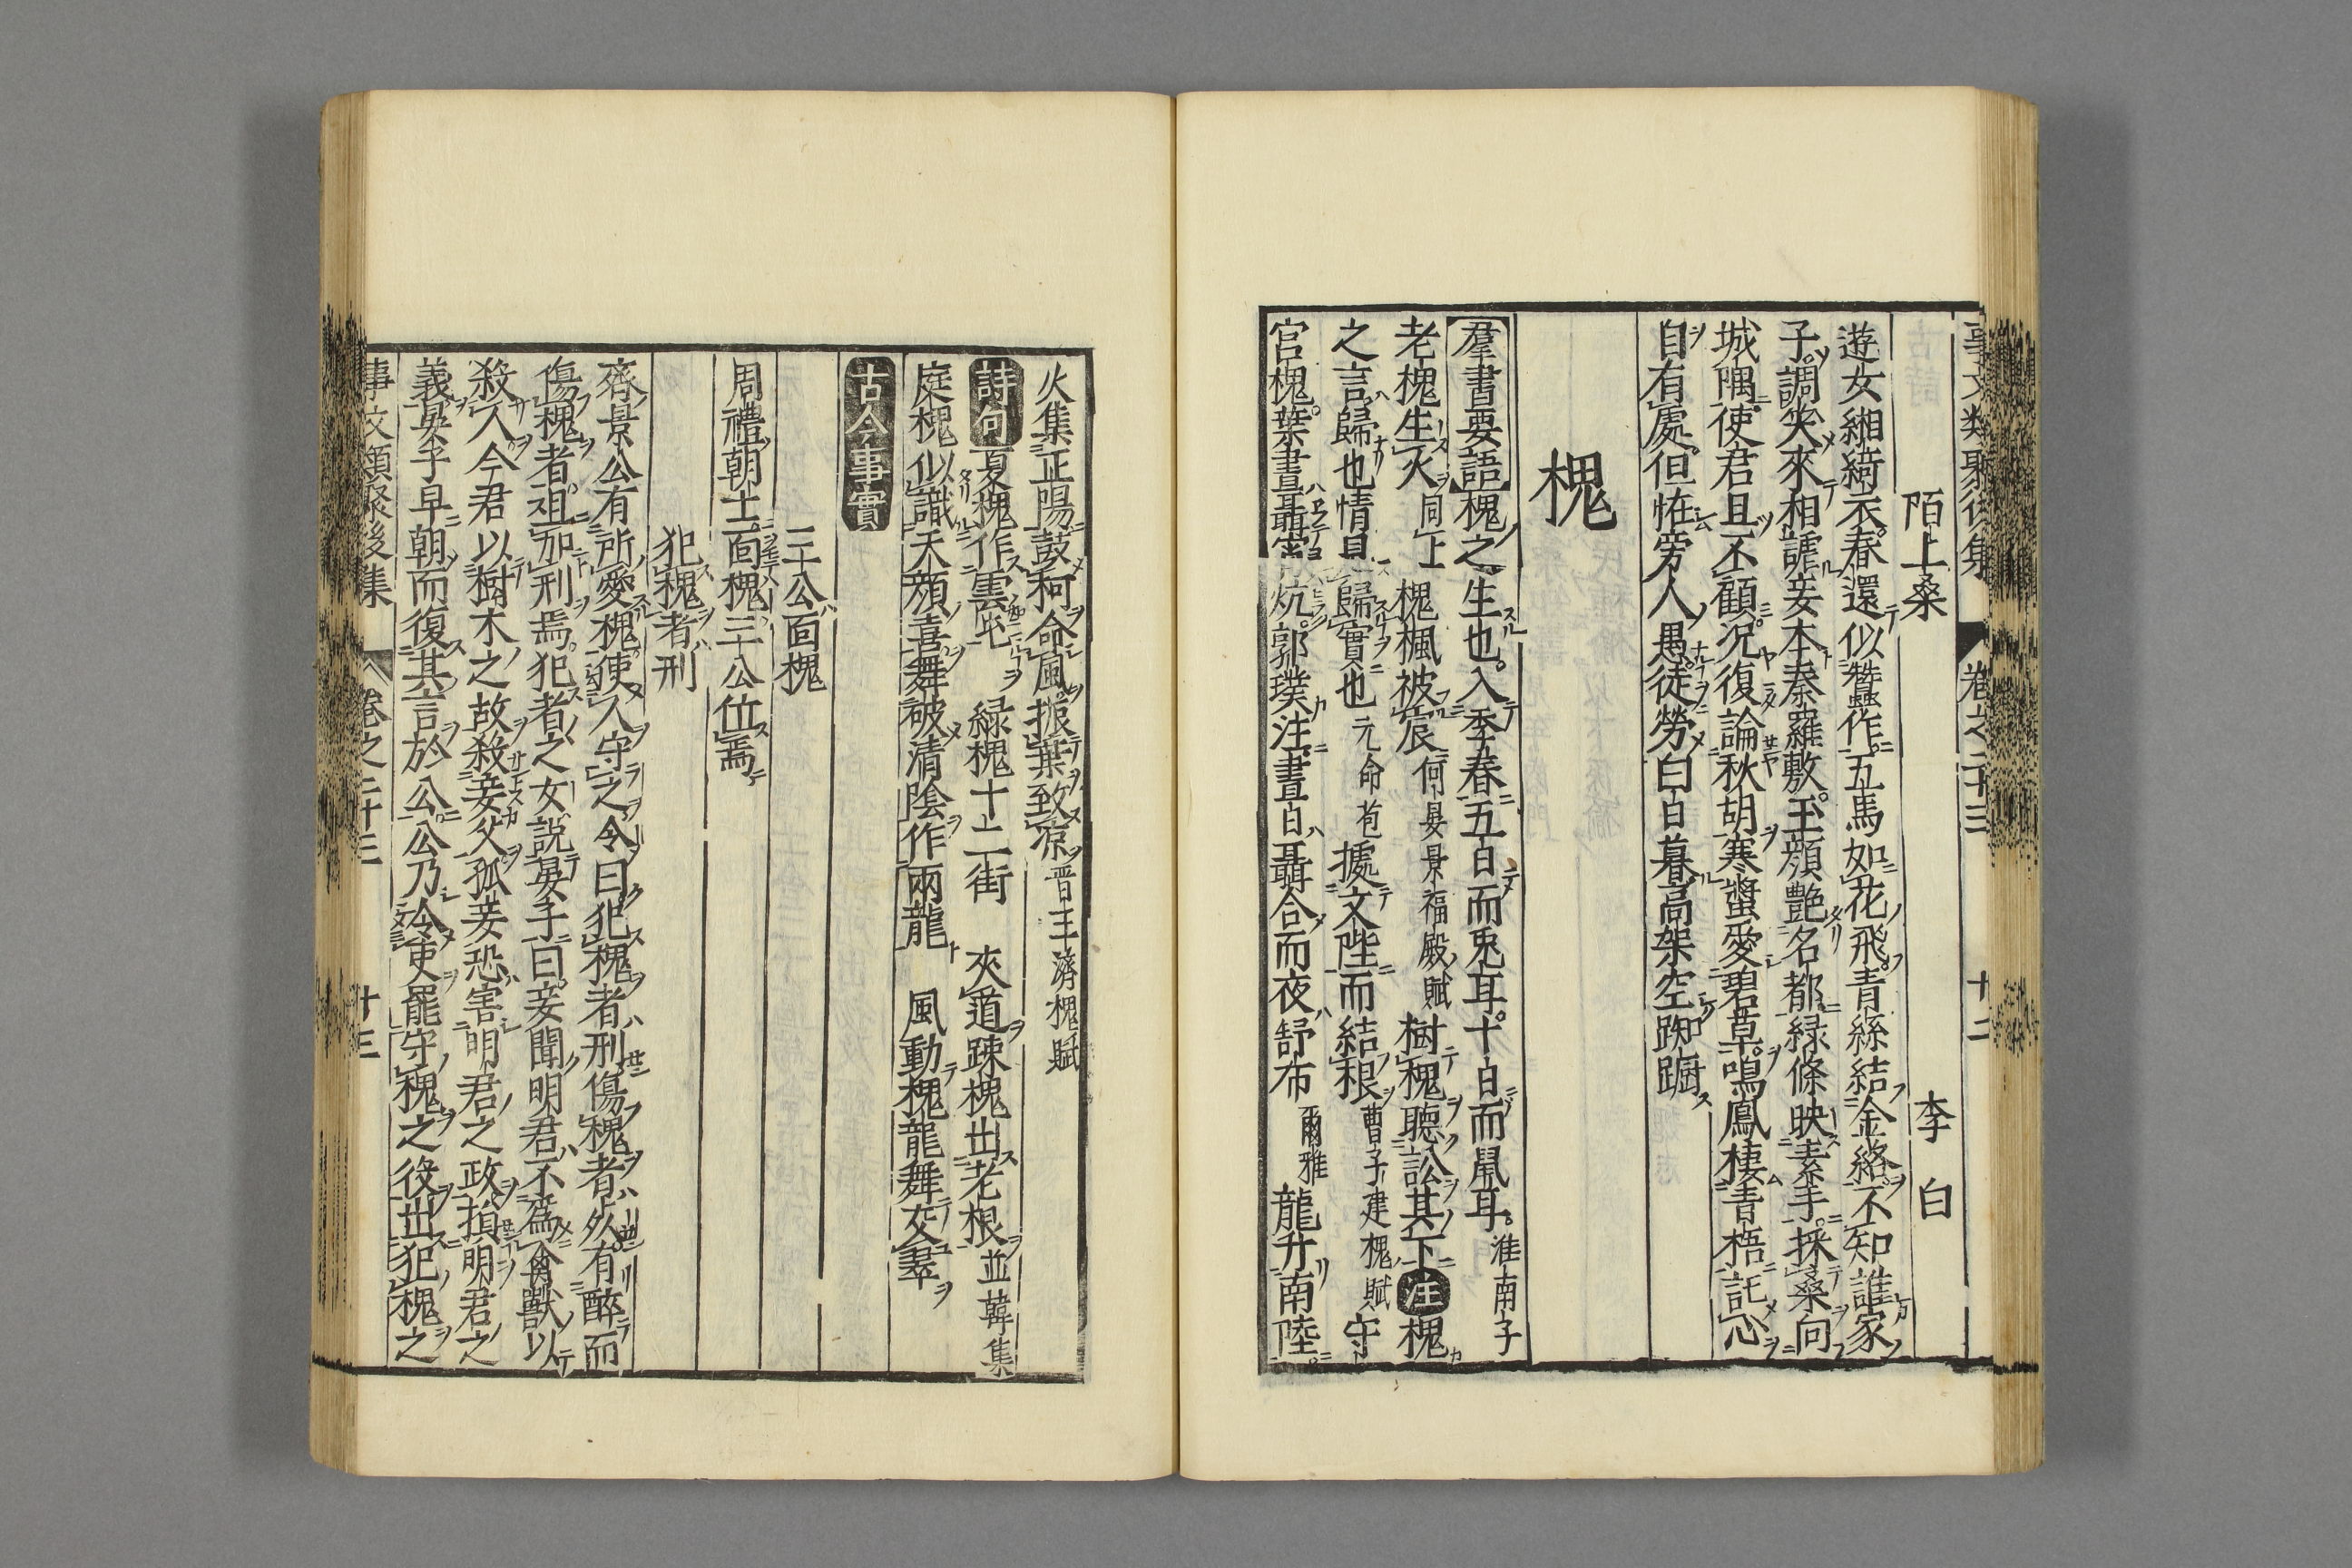 事文類聚後集 卷之二十三 廿二
陌上桑 李白
遊女緗綺衣春還似蠶作五馬如花飛青絲結金絡不知誰家
子調笑來相謔妾本秦羅敷玉顔艶名都緑條映素手採桑向
城隅使君且不顧况復論秋胡寒螿愛碧草鳴鳳棲青梧託心
自有處但恠旁人愚徒勞白日暮高架空踟蹰
槐
羣書要語槐之生也入季春五日而兎耳十日而鼠耳淮南子
老槐生火同上 槐楓被宸何晏景福殿賦 樹槐聽訟其下注槐
之言歸也情見歸實也元命苞 據文陛而結根曹子建槐賦 守
宫槐葉晝聶宵炕郭璞注晝日聶合而夜舒布爾雅 龍升南陸
火集正陽鼓柯命風振葉致凉晋王濟槐賦
詩句夏槐作雲屯 緑槐十二街 夾道踈槐出老根並韓集
庭槐似識天顔喜舞破清陰作兩龍 風動槐龍舞交翠
古今事實
三公面槐
周禮朝士面槐三公位焉
犯槐者刑
齊景公有所愛槐使人守之令曰犯槐者刑傷槐者死有醉而
傷槐者祖加刑焉犯者之女説晏子曰妾聞明君不為禽獸以
殺人今君以樹木之故殺妾父孤妾恐害明君之政損明君之
義晏子早朝而復其言於公公乃令吏罷守槐之役出犯槐之
事文類聚後集 卷之二十三 廿三